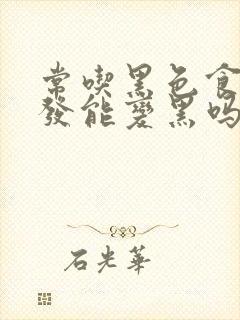 常喫黑色食
發能變黑吗
石光華